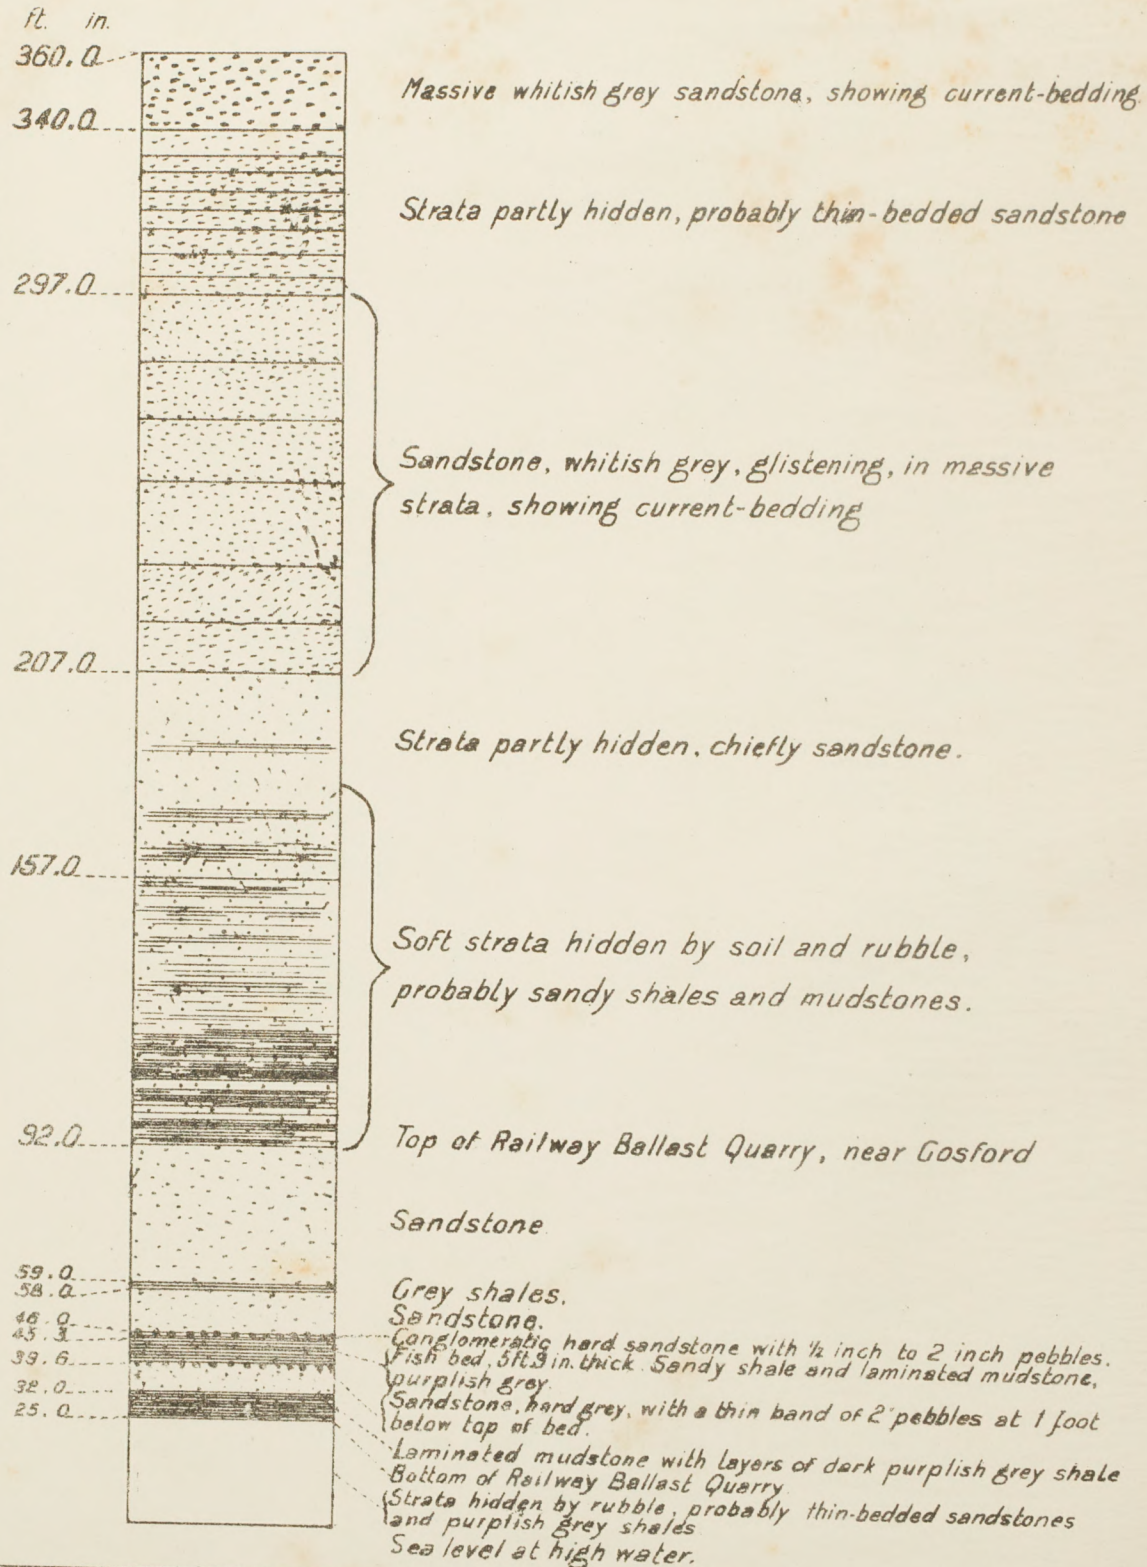 ft. in.
360.0
Massive whitish grey sandstone, showing current-bedding.
340.0
Strata partly hidden, probably thin-bedded sandstone
297.0
Sandstone, whitish grey, glistening, in massive
strata, showing current-bedding
207.0
Strata partly hidden, chiefly sandstone.
157.0
Soft strata hidden by soil and rubble,
probably sandy shales and mudstones.
92.0
Top of Railway Ballast Quarry, near Gosford
Sandstone
59.0
58.0
Grey shales.
Sandstone.
46.0
45.3
Conglomeratic hard sandstone with ½ inch to 2 inch pebbles.
Fish bed, 5ft.9 in. thick. Sandy shale and laminated mudstone,
purplish grey.
39.6
Sandstone, hard grey, with a thin band of 2" pebbles at 1 foot
below top of bed.
32.0
Laminated mudstone with layers of dark purplish grey shale
25.0
Bottom of Railway Ballast Quarry
Strata hidden by rubble, probably thin-bedded sandstones
and purplish grey shales
Sea level at high water.